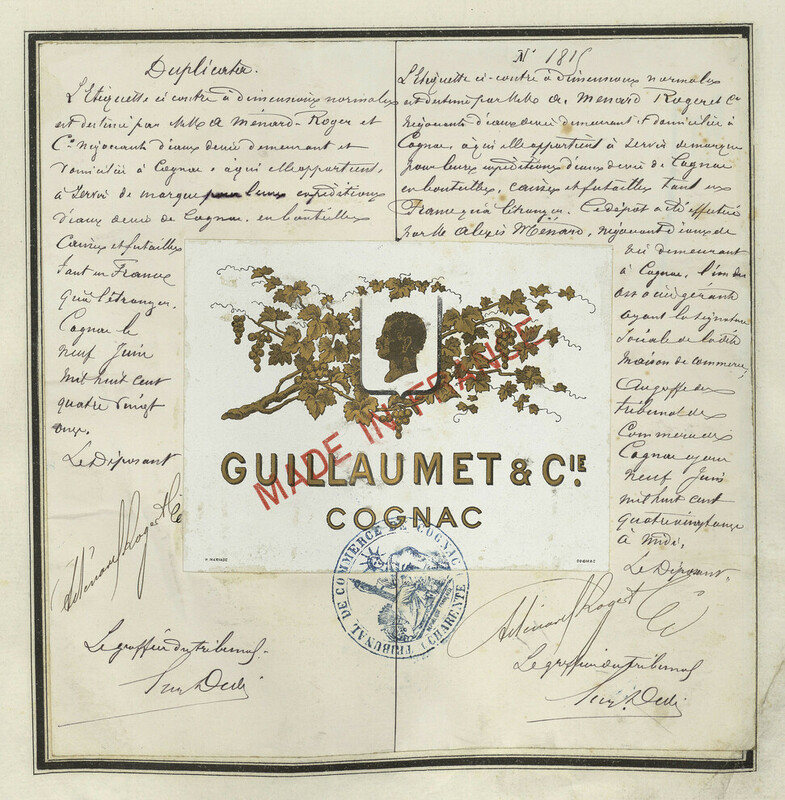 Duplicata.
L'étiquette ci contre à dimensions normales
est destiné par M.M. A Ménard-Roger et
Cie Négociants d'eaux devie demeurant et
domiciliés à Cognac, à qui elle appartient,
à servir de marque pour leurs expéditions
d'eaux devie de Cognac, en bouteilles
Caisses et futailles
tant en France
qu'à l'étranger.
Cognac le
neuf Juin
mil huit cent
quatre vingt
onze.
Le Déposant
AMénard Roger & Cie
Le greffier du tribunal.
No 1815
L'étiquette ci-contre à dimensions normales
est destiné par M.Mo A. Menard Roger et Cie
Négociants d'eaux devie demeurant & domiciliés à
Cognac, à qui elle appartient à servir de marque
pour leurs expéditions d'eaux devie de Cognac
en bouteilles, caisses et futailles tant en
France qu'à l'étranger. Ce dépôt a été effectué
par M. Alexis Ménard, négociant d'eaux de
vie demeurant
à Cognac, l'un des
associés gérants
ayant la signature
sociale de la dite
maison de commerce,
au greffe du
tribunal de
Commerce de
Cognac ce jour
neuf Juin
mil huit cent
quatre vingt onze
à midi.
Le Déposant.
AMénard Roger & Cie
Le greffier du tribunal
MADE IN FRANCE
GUILLAUMET & CIE.
COGNAC
COGNAC
TRIBUNAL DE COMMERCE DE COGNAC (CHARENTE)